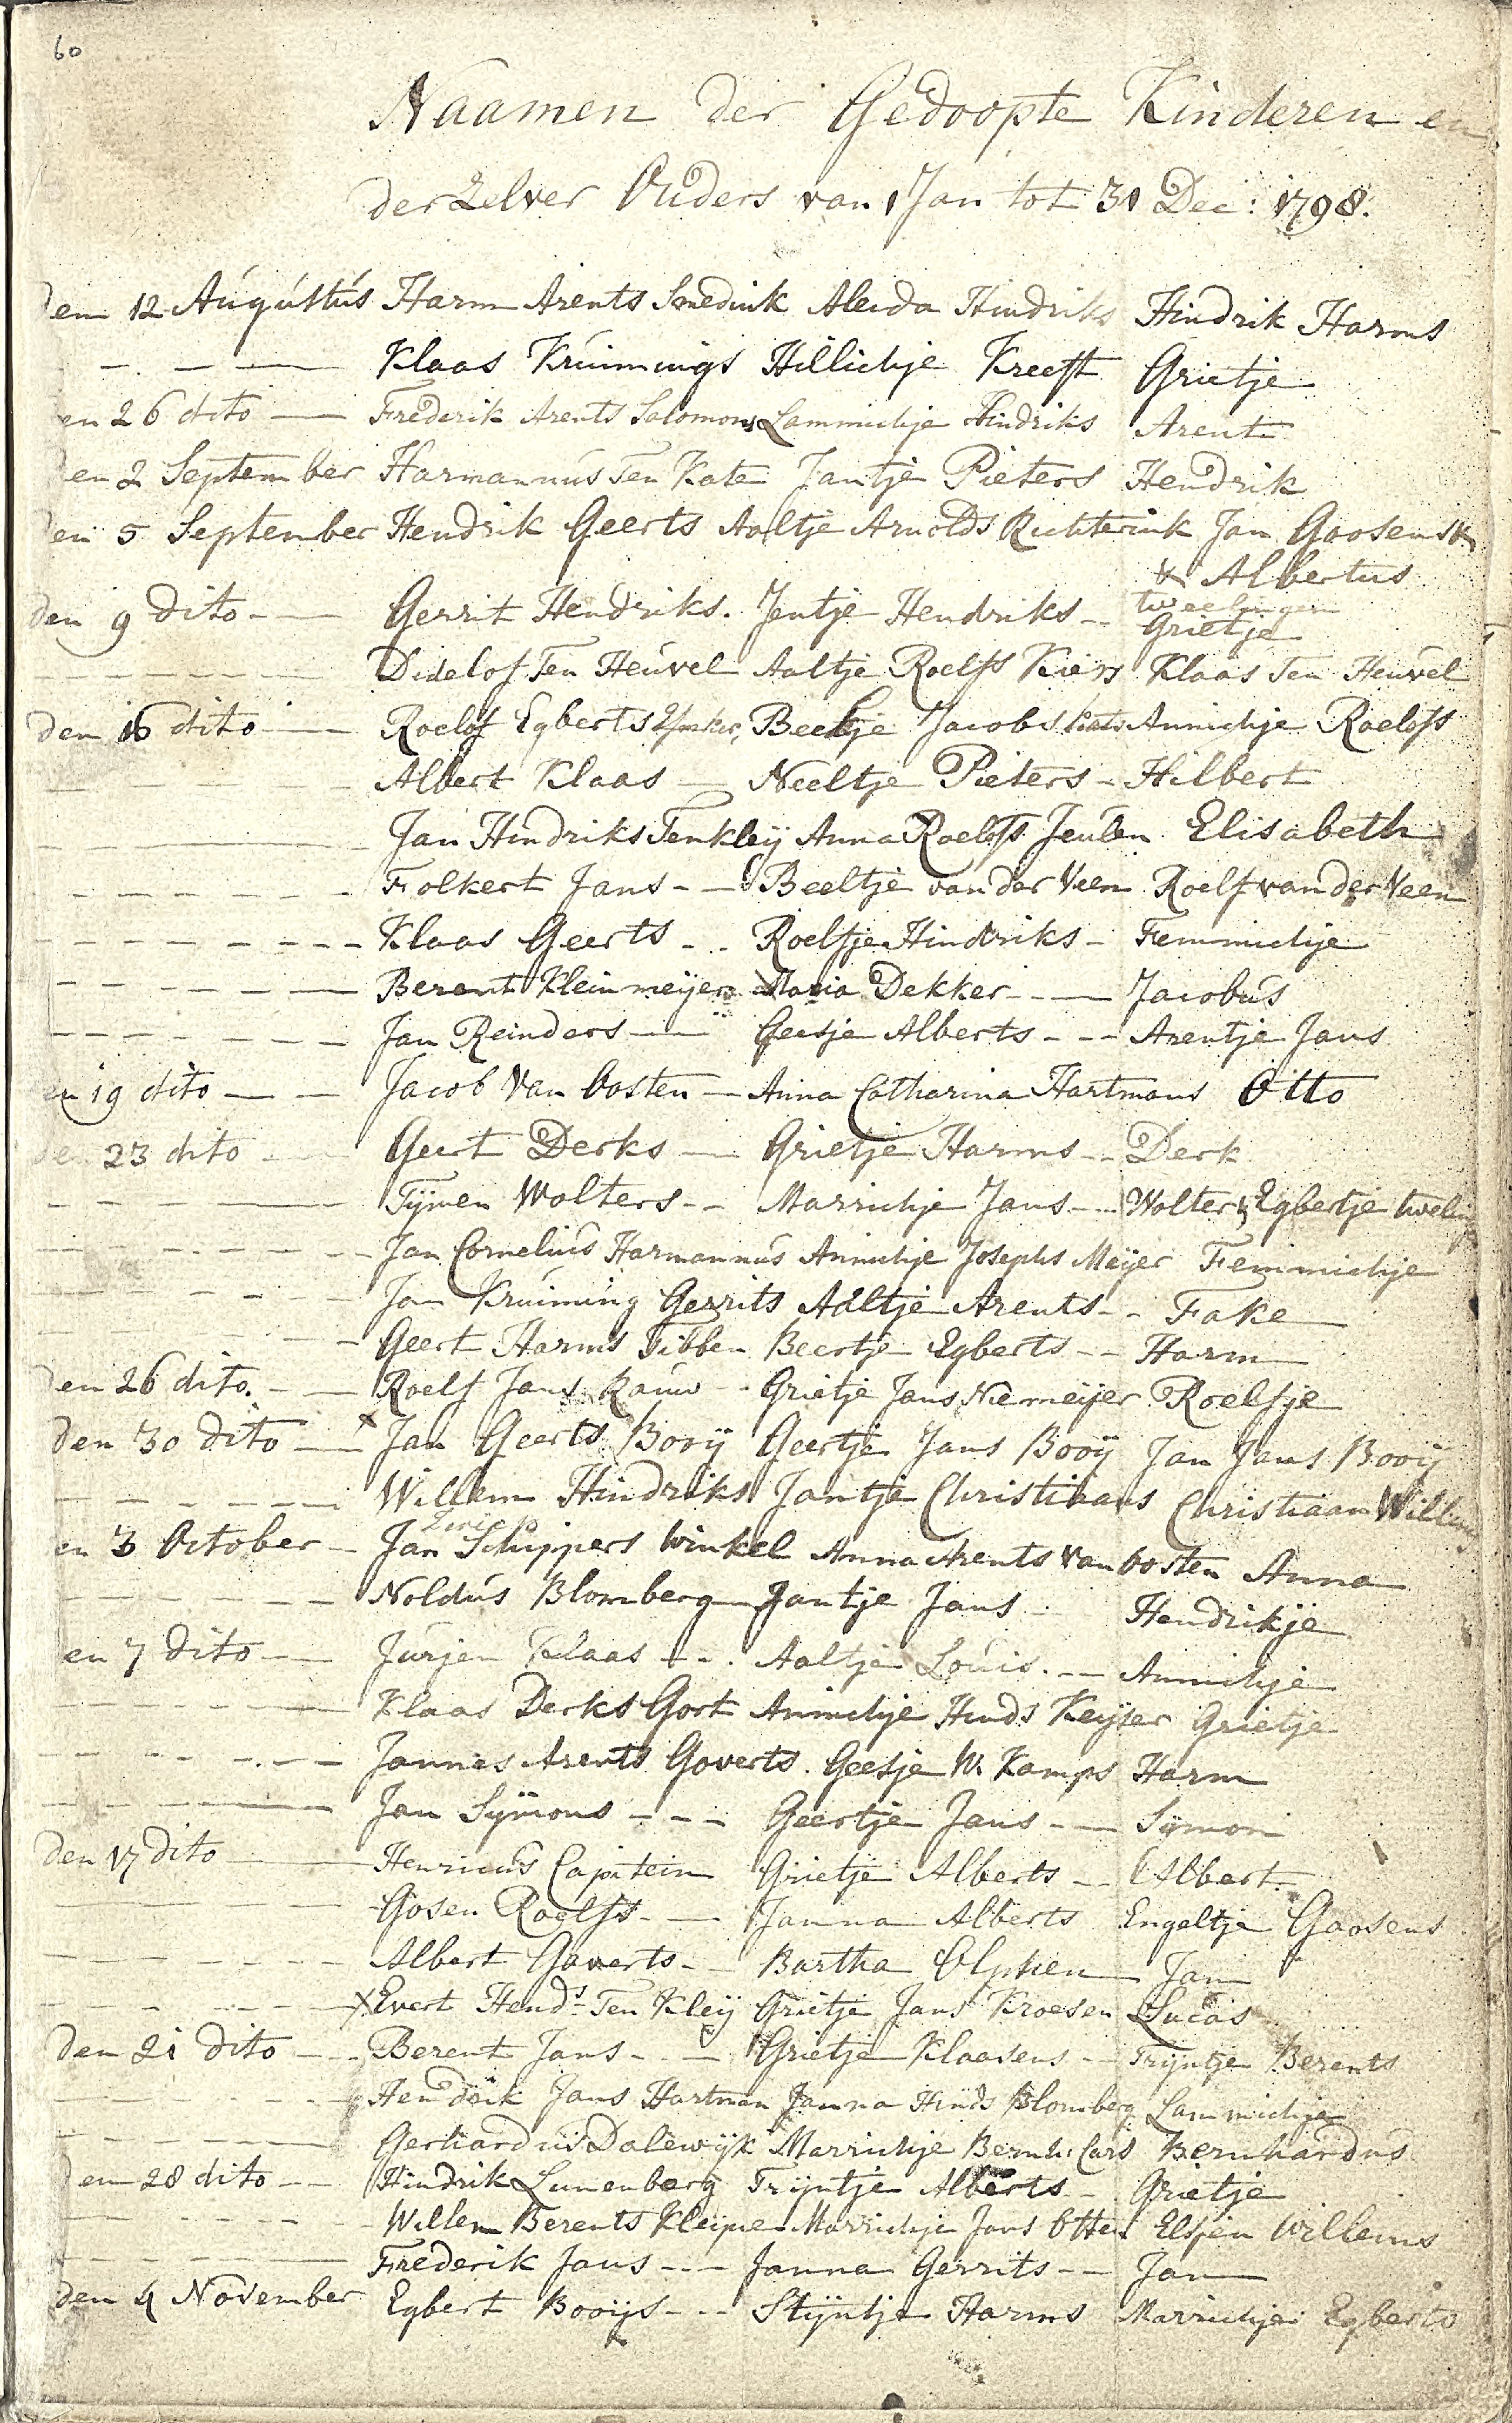 60
Naamen der Gedoopte Kinderen en
der Zelver Ouders van 1 Jan tot 31 Dec: 1798.
den 12 Augustus Harm Arents Smedink Aleida Hindriks Hindrik Harms
Klaas Kruimings Hillichje Kreeft Grietje
en 26 dito Frederik Arents Salomons Lammichje Hindriks Arent
en 2 September Harmannus Ten Kate Jantje Pieters Hendrik
den 5 September Hendrik Geerts Aaltje Arnolds Richterink Jan Goosens &
& Albertus
tweelingen
den 9 dito Gerrit Hendriks. Jentje Hendriks Grietje
Didelof Ten Heuvel Aaltje Roelfs Kiers Klaas Ten Heuvel
den 16 dito Roelof Egberts Beeltje Jacobs Annichje Roelofs
Albert Klaas Neeltje Pieters Hilbert
Jan Hindriks Tenkleij Anna Roelofs Jeulen Elisabeth
Folkert Jans Beeltje van der Veen Roelf van der Veen
Klaas Geerts Roelfje Hindriks Femmichje
Berent Kleinmeijer Maria Dekker Jacobus
Jan Reinders Geesje Alberts Arentje Jans
en 19 dito Jacob Van Oosten Anna Catharina Hartmans Otto
den 23 dito Geert Derks Grietje Harms Derk
Tijmen Wolters Marrichje Jans Wolter & Egbertje tweling
Jan Cornelius Harmannus Annichje Josephs Meijer Femmichje
Jan Kruiming Gerrits Aaltje Arents Fake
Geert Harms Tibben Beertje Egberts Harm
den 26 dito. Roelf Jans Kauw Grietje Jans Niemeijer Roelfje
den 30 dito x Jan Geerts Booij Geertje Jans Booij Jan Jans Booij
Willem Hindriks Jantje Christiaans Christiaan Willems
en 3 October Jan Schippers Winkel Anna Arents Van Oosten Anna
Noldus Blomberg Jantje Jans Hendrikje
en 7 dito Jurjen Klaas Aaltje Louis. Annichje
Klaas Derks Gort Annichje Hinds Keijser Grietje
Jannes Arents Goverts. Geesje W. Kamps Harm
Jan Sijmons Geertje Jans Sijmon
den 17 dito Henricus Capitein Grietje Alberts Albert
Gosen Roelfs Janna Alberts Engeltje Goosens
Albert Goverts Bartha Olphen Jan
x Evert Hends Ten Kleij Grietje Jans Kroesen Lucas
den 21 dito Berent Jans Grietje Klaasens Trijntje Berents
Hendrik Jans Hartman Janna Hinds Blomberg Lammichje
Gerhardus Dalewijk Marrichje Bernh: Cars Bernhardus
den 28 dito Hindrik Lunenberg Trijntje Alberts Grietje
Willem Berents Kleijne Marrichje Jans Otten Elsjen Willems
Frederik Jans Janna Gerrits Jan
den 4 November Egbert Booijs Stijntje Harms Marrichje Egberts